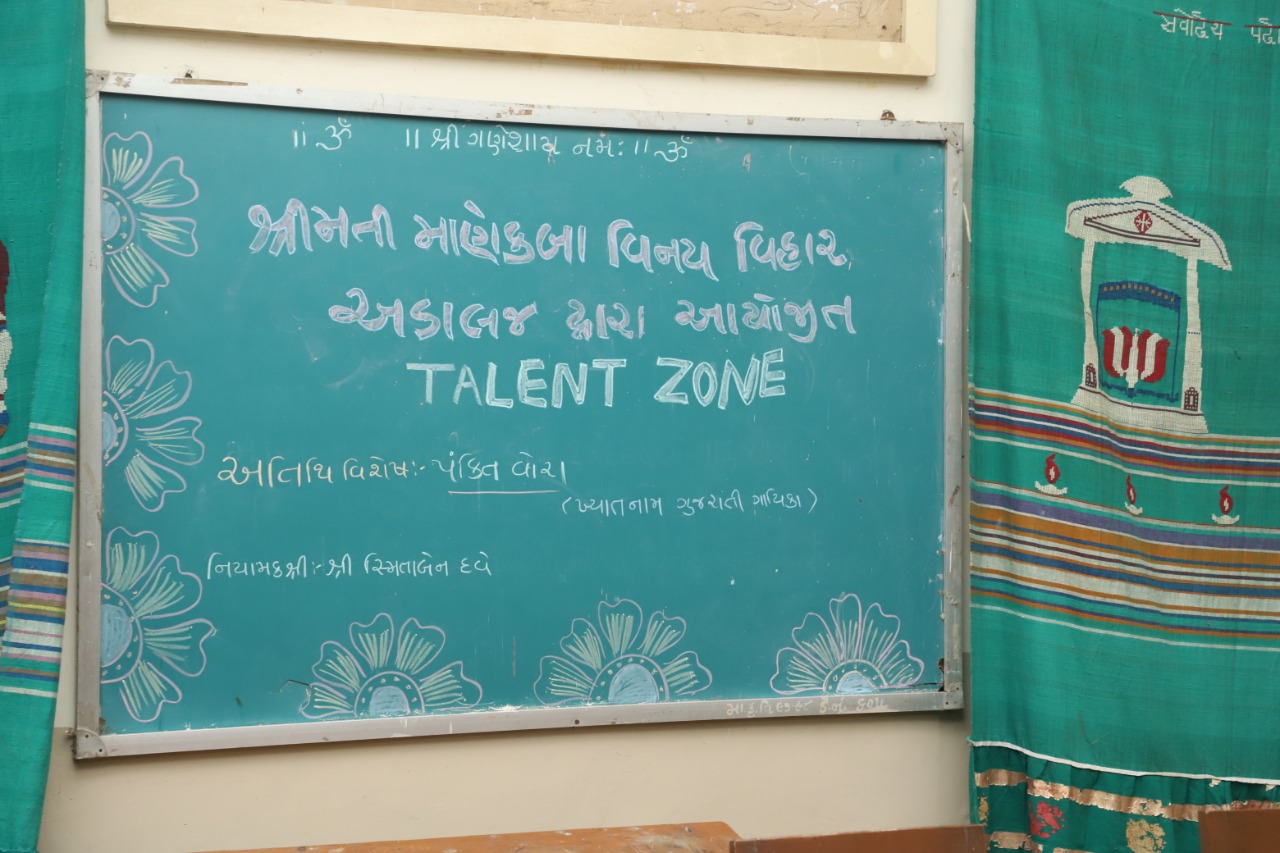 ॥ ૐ ॥ શ્રી ગણેશાય નમઃ ॥ ૐ
શ્રીમતી માણેકબા વિનય વિહાર,
અડાલજ દ્વારા આયોજીત
TALENT ZONE
અતિથિ વિશેષઃ- પંક્તિ વોરા
(ખ્યાતનામ ગુજરાતી ગાયિકા)
નિયામકશ્રીઃ- શ્રી સ્મિતાબેન દવે
સર્વોદય